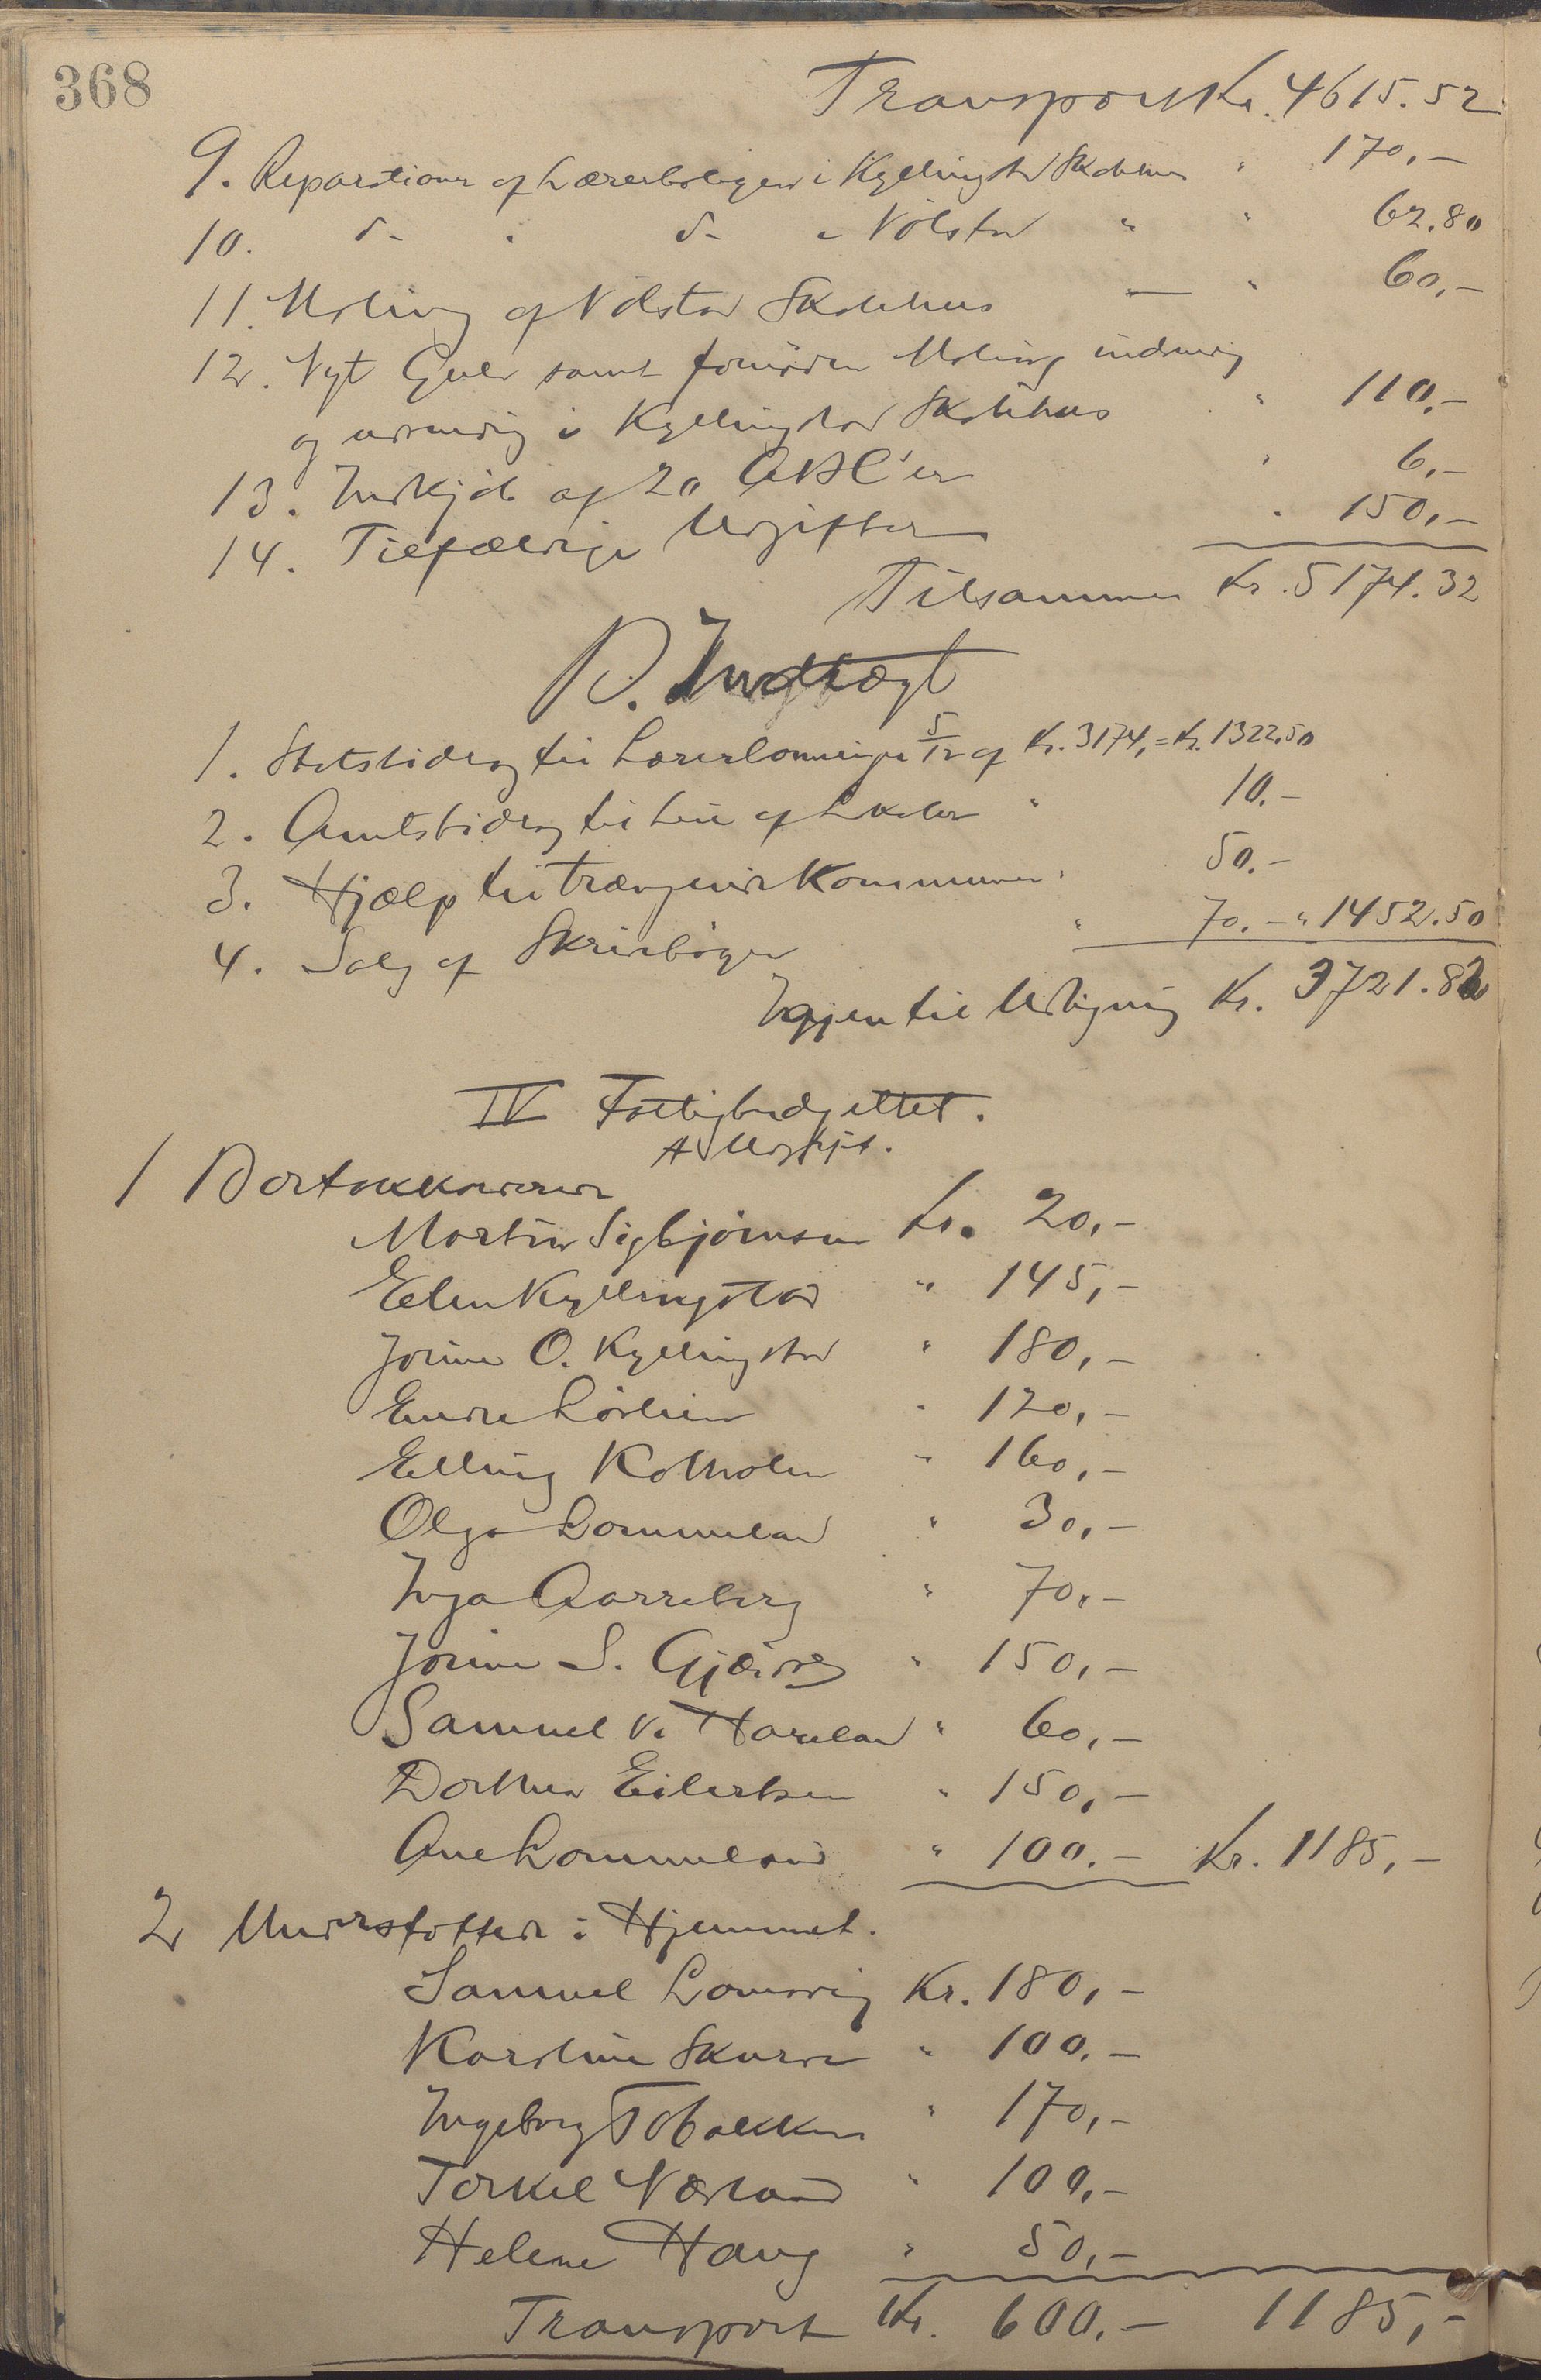 368
Transport Kr. 4615.52
9. Reparationer af Lærerboligen i Kyllingstad Skolehus " 170,-
10. do " do " Nølstad " " 62.80
11. Maling af Nølstad Skolehus — " 60,-
12. Nyt Gulv samt fornøden Maling indvendig
og udvendig i Kyllingstad Skolehus " 110,-
13. Indkjøb af 20 ABC'er " 6,-
14. Tilfældige Udgifter " 150,-
Tilsammen Kr. 5174.32
B. Indtægt
1. Statsbidrag til Lærerlønninger 5/12 af Kr. 3174,- = Kr. 1322.50
2. Amtsbidrag til Leie af Lokaler " 10.-
3. Hjælp til trængende Kommuner " 50.-
4. Salg af Skrivbøger " 70.- " 1452.50
Igjen til Udligning Kr. 3721.82
IV Fattigbudgettet.
A Udgift.
1 Bortakkorderede
Martin Sigbjørnsen Kr. 20,-
Elen Kyllingstad " 145,-
Jorine O. Kyllingstad " 180,-
Endre " 120,-
Elling Kolholen " 160,-
Olga Lommeland " 30,-
Inga Aarreberg " 70.-
Jorine S. " 150,-
Samuel V. Haveland " 60,-
Dorthea Eilertsen " 150,-
Ane Lommeland " 100.- Kr. 1185,-
2 Understøttede i Hjemmet.
Samuel Kr. 180,-
Karoline Skurve " 100.-
Ingeborg Tobakken " 170,-
Torkel Nærland " 100,-
Helene Haug " 50,-
Transport Kr. 600.- 1185,-